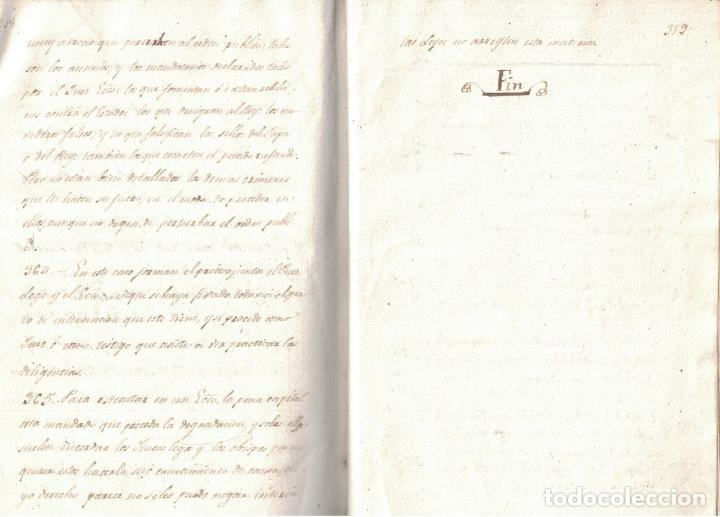 muy atroces que perturban al orden publico: tales
son los asesinos, y los mandatarios declarados tales
por el Juez Ecco. los que fomentan ó excitan rebelio-
nes contra el Estado: los que denigran al Rey: los mo-
nederos falsos, y los que falsifican los sellos del Papa
ó del Rey: tambien los que cometen el pecado nefando.
Pero no estan bien detallados los demas crimenes
que les hacen su fuero, ni el modo de proceder en
ellos, aunque no dejen de perturbar el orden publi-
364.— En este caso forman el proceso juntos el Juez
Lego y el Ecco. sin que se haya fixado todavia el gra-
do de intervencion que este tiene, y si procede como
Juez ó como testigo que asiste a ver practicar las
diligencias.
365. Para executar en un Ecco. la pena capital
esta mandado que preceda la degradacion, y sobre ella
suelen discordar los Jueces legos y los obispos
queriendo estos hacerla con conocimiento de causa, cu-
yo derecho parece no se les puede negar interin
319.
las Leyes no arreglen esta materia.
Fin
todocoleccion
todocoleccion.net